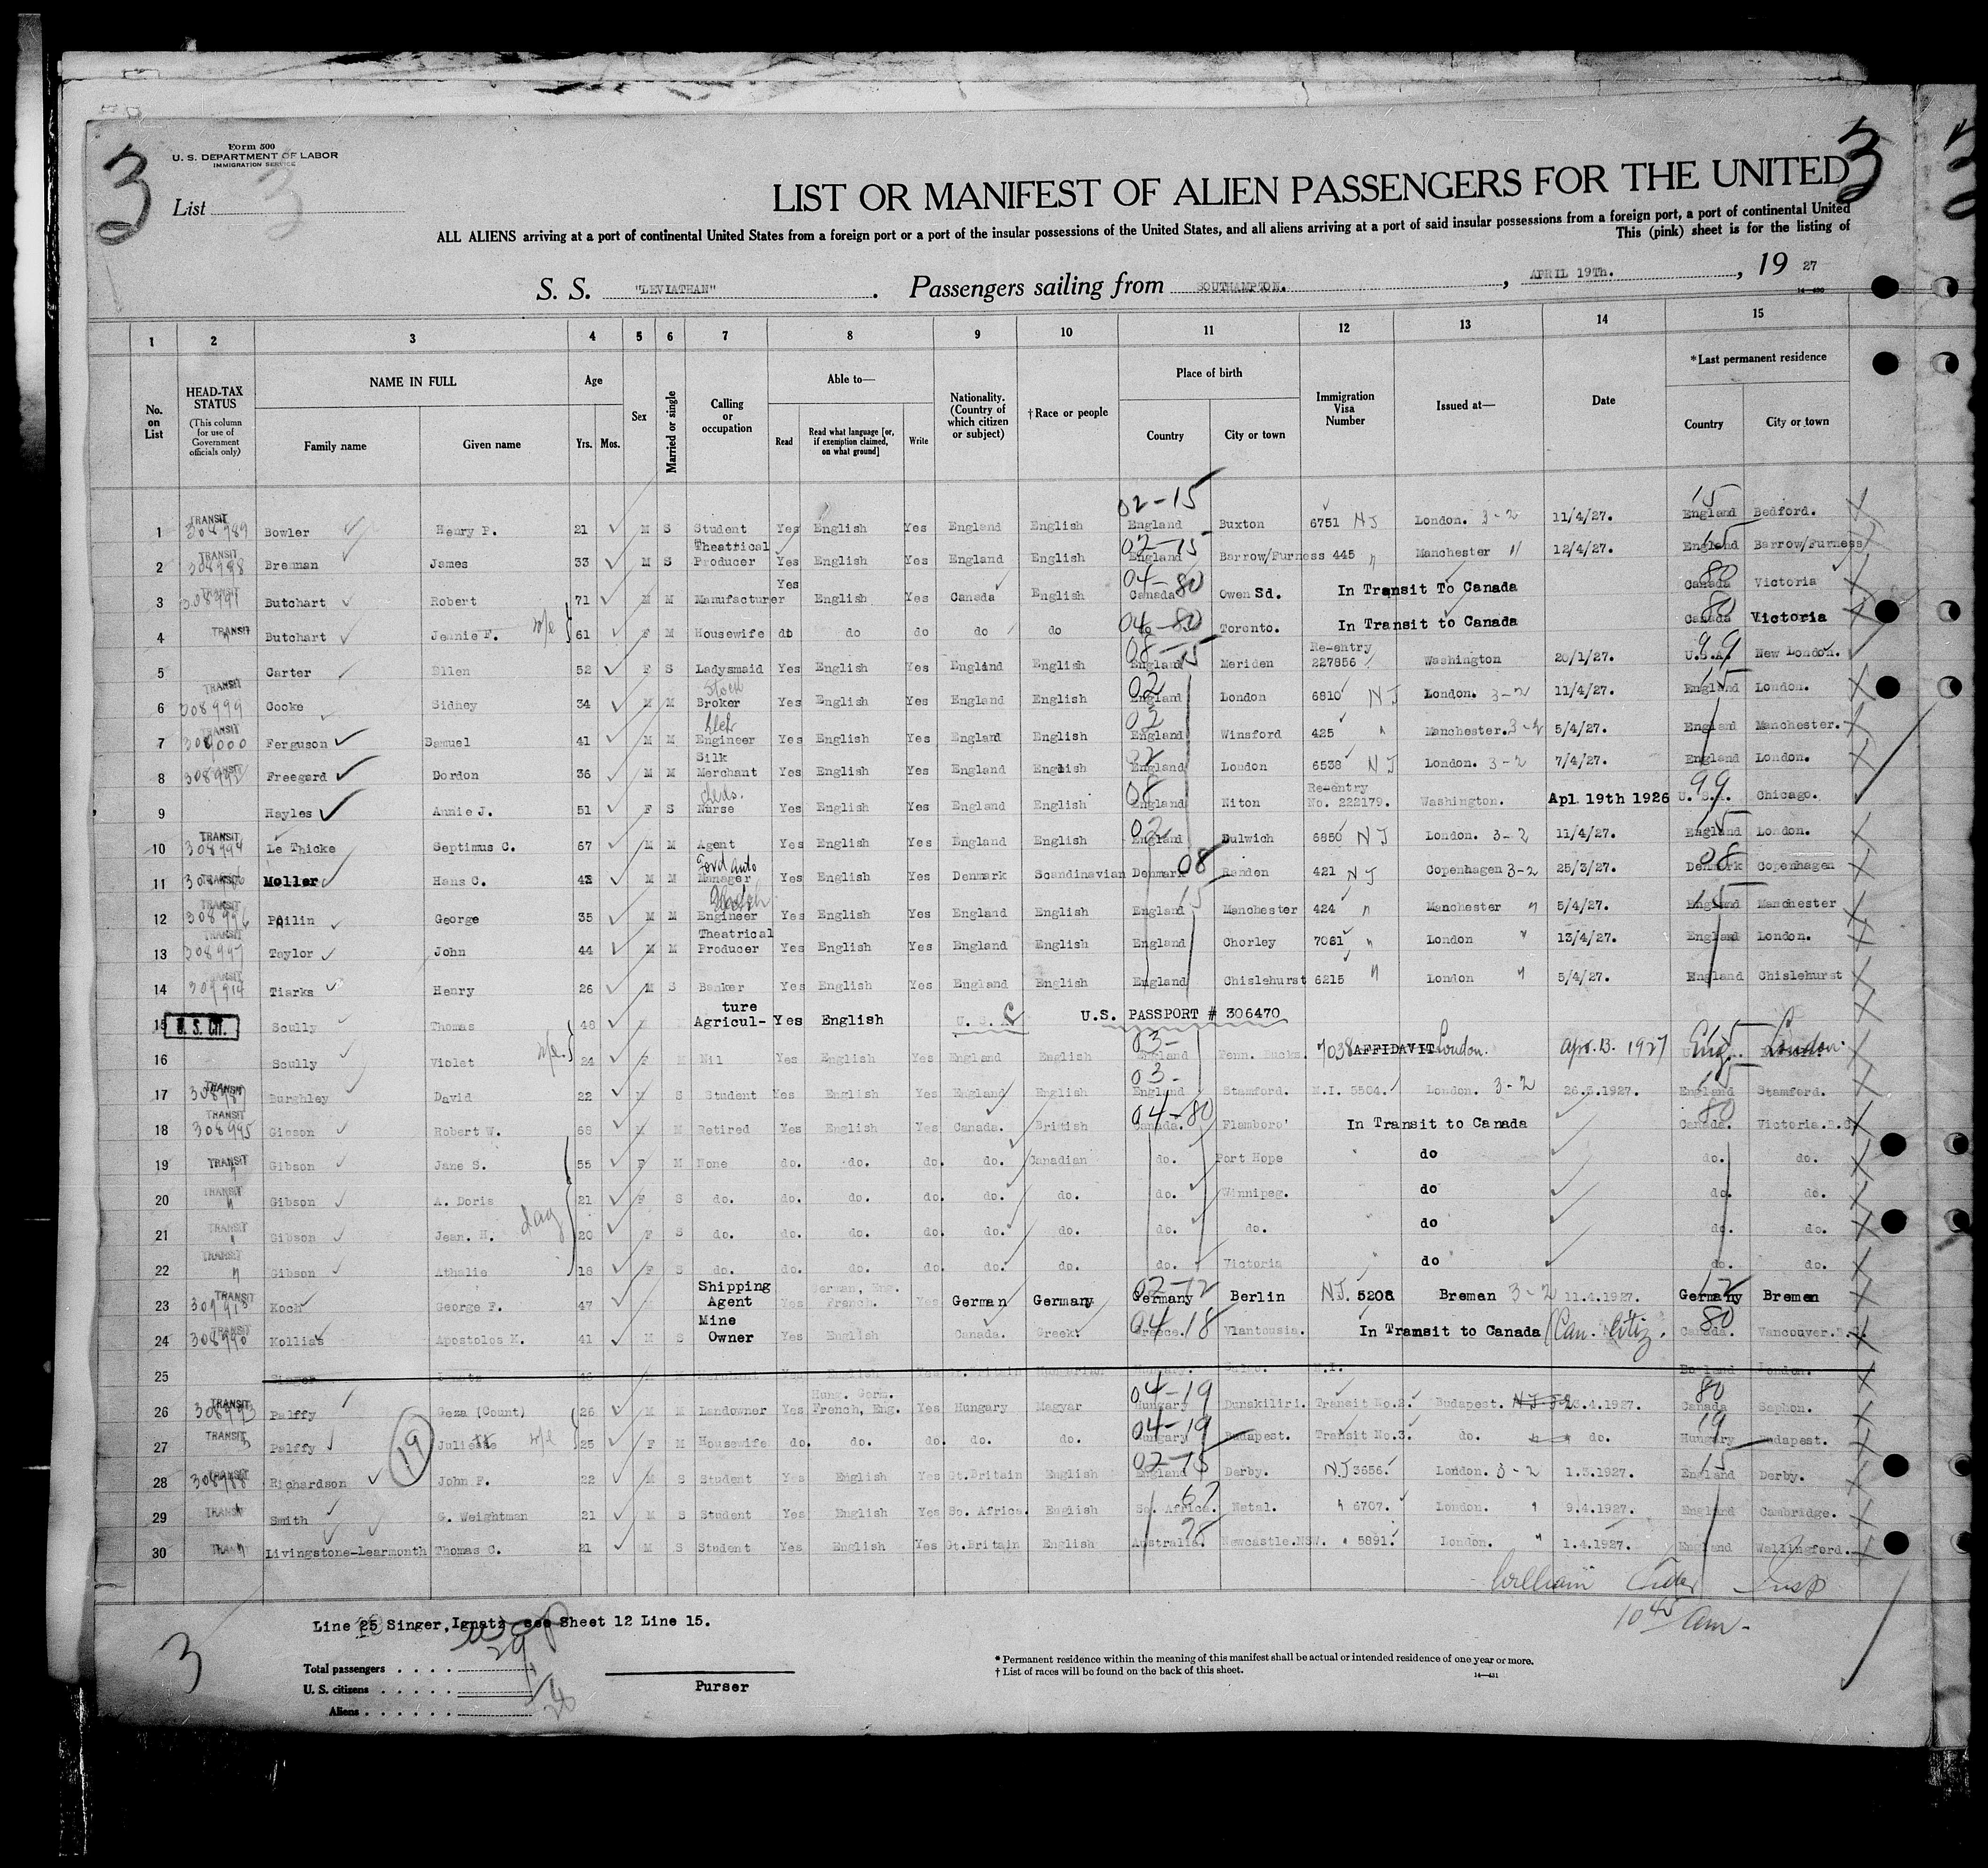 3
Form 500
U. S. DEPARTMENT OF LABOR
IMMIGRATION SERVICE
3
List 3
LIST OR MANIFEST OF ALIEN PASSENGERS FOR THE UNITED
ALL ALIENS arriving at a port of continental United States from a foreign port or a port of the insular possessions of the United States, and all aliens arriving at a port of said insular possessions from a foreign port, a port of continental United
This (pink) sheet is for the listing of
S. S. "LEVIATHAN". Passengers sailing from SOUTHAMPTON., APRIL 19Th., 19 27
1 2 3 4 5 6 7 8 9 10 11 12 13 14 15
No. on List
HEAD-TAX STATUS
(This column for use of Government officials only)
NAME IN FULL
Family name Given name
Age
Yrs. Mos.
Sex
Married or single
Calling or occupation
Able to—
Read
Read what language [or, if exemption claimed, on what ground]
Write
Nationality. (Country of which citizen or subject)
†Race or people
Place of birth
Country City or town
Immigration Visa Number
Issued at—
Date
*Last permanent residence
Country City or town
1 TRANSIT 308989 Bowler Henry P. 21 M S Student Yes English Yes England English 02-15 England Buxton 6751 NJ London. 3-2 11/4/27. 15 England Bedford.
2 TRANSIT Brennan James 33 M S Theatrical Producer Yes English Yes England English 02-15 England Barrow/Furness 445 " Manchester " 12/4/27. 15 England Barrow/Furness
3 TRANSIT 308991 Butchart Robert 71 M M Manufacturer Yes English Yes Canada English 04-80 Canada Owen Sd. In Transit To Canada 80 Canada Victoria
4 TRANSIT Butchart Jeanie F. w/e 61 F M Housewife do do do do do 04-80 Toronto. In Transit to Canada 80 Canada Victoria
5 Carter Ellen 52 F S Ladysmaid Yes English Yes England English 08-15 England Meriden Re-entry 227856 Washington 20/1/27. 99 U.S.A. New London.
6 TRANSIT 308999 Cooke Sidney 34 M M Stock Broker Yes English Yes England English 02 England London 6810 NJ London. 3-2 11/4/27. 15 England London.
7 TRANSIT Ferguson Samuel 41 M M Engineer Yes English Yes England English 02 England Winsford 425 " Manchester. 3-2 5/4/27. England Manchester.
8 TRANSIT 308992 Freegard Dordon 36 M M Silk Merchant Yes English Yes England English 02 England London 6538 NJ London. 3-2 7/4/27. England London.
9 Hayles Annie J. 51 F S Nurse Yes English Yes England English 08 England Niton Re-entry No. 222179. Washington. Apl. 19th 1926 99 U.S.A. Chicago.
10 TRANSIT 308994 Le Thicke Septimus C. 67 M M Agent Yes English Yes England English 02 England Dulwich 6850 NJ London. 3-2 11/4/27. 15 England London.
11 TRANSIT Moller Hans C. 42 M M Ford Auto Manager Yes English Yes Denmark Scandinavian Denmark 08 Randen 421 NJ Copenhagen 3-2 25/3/27. 08 Denmark Copenhagen
12 TRANSIT 308996 George 35 M M Engineer Yes English Yes England English England 15 Manchester 424 " Manchester " 5/4/27. 15 England Manchester
13 TRANSIT 308997 Taylor John 44 M M Theatrical Producer Yes English Yes England English England Chorley 7061 " London " 13/4/27. England London.
14 TRANSIT 309914 Tiarks Henry 26 M S Banker Yes English Yes England English England Chislehurst 6215 " London " 5/4/27. England Chislehurst
15 U.S. CIT. Scully Thomas 48 Agriculture Yes English U.S. U.S. PASSPORT # 306470
16 Scully Violet w/e. 24 F M Nil Yes English Yes England English 03- England Penn. Bucks. 7038 AFFIDAVIT London. Apr. 13. 1927 Eng. London.
17 TRANSIT Burghley David 22 M S Student Yes English Yes England English 03- England Stamford. N.I. 5504. London. 3-2 26.3.1927. 15 England Stamford.
18 TRANSIT 308995 Gibson Robert W. 68 M M Retired Yes English Yes Canada. British 04-80 Canada. Flamboro' In Transit to Canada 80 Canada. Victoria.B.C
19 TRANSIT " Gibson Jane S. 55 F M None do. do. do. do. Canadian do. Port Hope do do. do.
20 TRANSIT " Gibson A. Doris 21 F S do. do. do. do. do. do. do. Winnipeg. do do. do.
21 TRANSIT " Gibson Jean. H. dag 20 F S do. do. do. do. do. do. do. do. do do. do.
22 TRANSIT " Gibson Athalie 18 F S do. do. do. do. do. do. do. Victoria do do. do.
23 TRANSIT Koch George F. 47 Shipping Agent Yes German, Eng. French. Yes German Germany 02-12 Germany Berlin NJ. 5208 Bremen 3-2 11.4.1927. 12 Germany Bremen
24 TRANSIT 308990 Kollias Apostolos K. 41 M S Mine Owner Yes English Canada. Greek. 04-18 Greece. Vlantousia. In Transit to Canada (Can. Citiz. 80 Canada. Vancouver.B.C
25 Singer London.
26 TRANSIT 308993 Palffy Geza (Count) 26 M M Landowner Yes Hung. Germ. French, Eng. Yes Hungary Magyar 04-19 Hungary Dunskiliri. Transit No.2. Budapest. .4.1927. 80 Canada
27 TRANSIT " Palffy 19 w/e 25 F M Housewife do. do. do. do. do. 04-19 Hungary Budapest. Transit No.3. do. do. 19 Hungary Budapest.
28 TRANSIT 308988 Richardson John F. 22 M S Student Yes English Yes Gt.Britain English 02-15 England Derby. NJ 3656. London. 3-2 1.3.1927. 15 England Derby.
29 TRANSIT Smith G. Weightman 21 M S Student Yes English Yes So. Africa. English So. Africa. 67 Natal. " 6707. London. " 9.4.1927. England Cambridge.
30 TRANSIT Livingstone-Learmonth Thomas C. 21 M S Student Yes English Yes Gt.Britain English Australia. Newcastle.NSW. " 5891. London. " 1.4.1927. England Wallingford.
William Insp
10 45 am.
Line 25 Singer, Ignatz see Sheet 12 Line 15.
3
Total passengers . . . . 29
U. S. citizens . . . . .
Aliens . . . . . .
Purser
* Permanent residence within the meaning of this manifest shall be actual or intended residence of one year or more.
† List of races will be found on the back of this sheet.
14—431